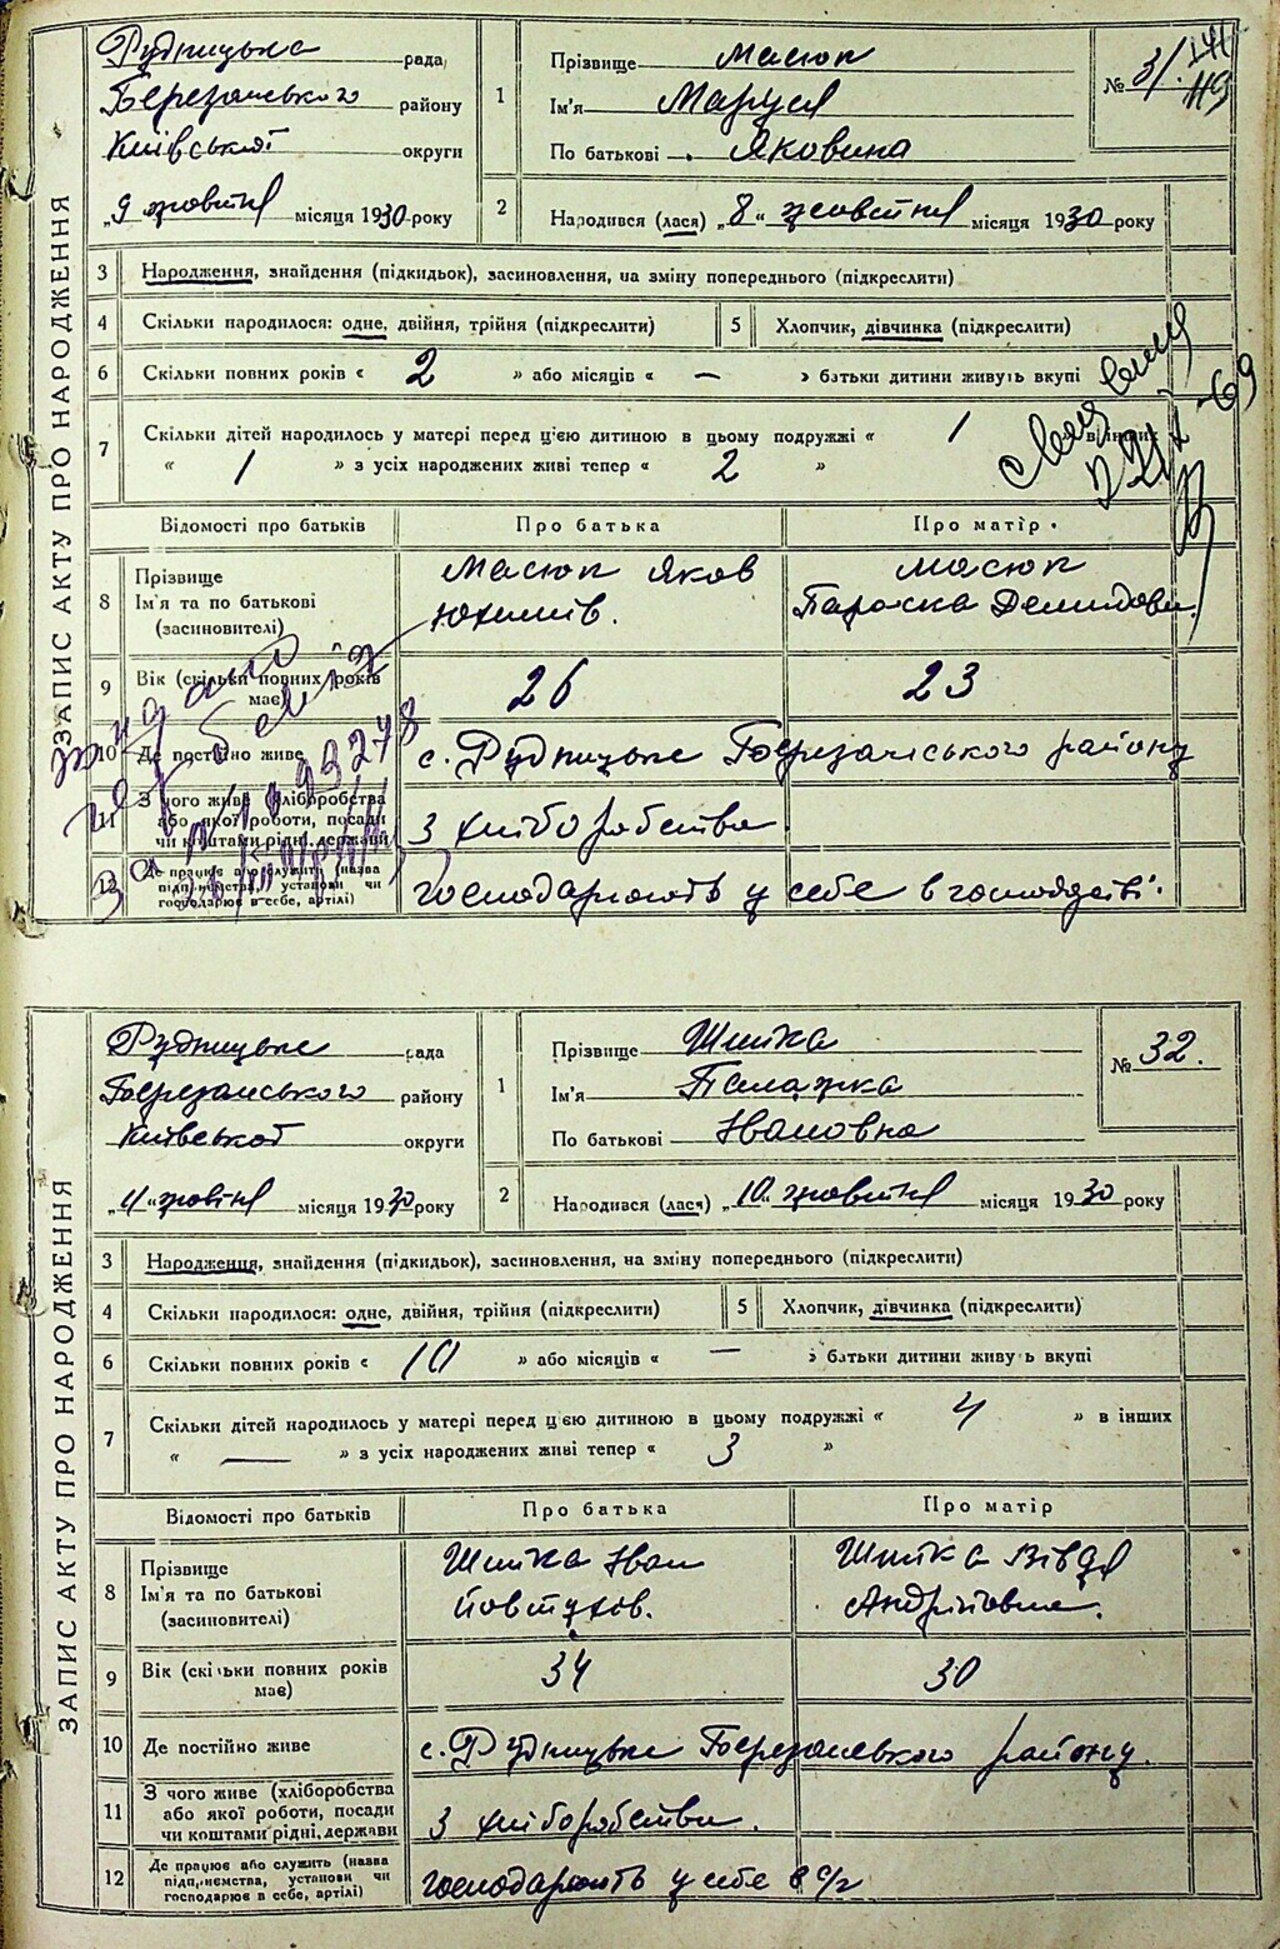 ЗАПИС АКТУ ПРО НАРОДЖЕННЯ
Рудницька рада
Березанського району
Київської округи
„9 жовтня місяця 1930 року
1
Прізвище Масюк
Ім'я Маруся
По батькові Яковина
№ 31.
2
Народився (лася) „8“ жовтня місяця 1930 року
3 Народження, знайдення (підкидьок), засиновлення, на зміну попереднього (підкреслити)
4 Скільки народилося: одне, двійня, трійня (підкреслити) 5 Хлопчик, дівчинка (підкреслити)
6 Скільки повних років « 2 » або місяців « — » батьки дитини живуть вкупі
7 Скільки дітей народилось у матері перед цією дитиною в цьому подружжі « 1 » в інших
« 1 » з усіх народжених живі тепер « 2 »
Відомості про батьків Про батька Про матір
8 Прізвище Ім'я та по батькові (засиновителі)
Масюк Яков Юхимів.
Масюк Параска Демидовн.
9 Вік (скільки повних років має) 26 23
10 Де постійно живе с. Рудницьке Березанського району
11 З чого живе (хліборобства або якої роботи, посади чи коштами рідні, держави З хліборобства
12 Де працює або служить (назва підприємства, установи чи господарює в себе, артілі) господарюють у себе в господарстві.
ЗАПИС АКТУ ПРО НАРОДЖЕННЯ
Рудницьке рада
Березанського району
Київської округи
„11“ жовтня місяця 1930 року
1
Прізвище Шпика
Ім'я Палажка
По батькові Івановна
№ 32.
2
Народився (лася) „10“ жовтня місяця 1930 року
3 Народження, знайдення (підкидьок), засиновлення, на зміну попереднього (підкреслити)
4 Скільки народилося: одне, двійня, трійня (підкреслити) 5 Хлопчик, дівчинка (підкреслити)
6 Скільки повних років « 10 » або місяців « — » батьки дитини живуть вкупі
7 Скільки дітей народилось у матері перед цією дитиною в цьому подружжі « 4 » в інших
« — » з усіх народжених живі тепер « 3 »
Відомості про батьків Про батька Про матір
8 Прізвище Ім'я та по батькові (засиновителі)
Шпика Іван Йовтухов.
Шпика Вівдя Андрійовна.
9 Вік (скільки повних років має) 34 30
10 Де постійно живе с. Рудницьке Березанського району.
11 З чого живе (хліборобства або якої роботи, посади чи коштами рідні, держави З хліборобства.
12 Де працює або служить (назва підприємства, установи чи господарює в себе, артілі) господарюють у себе в с/г